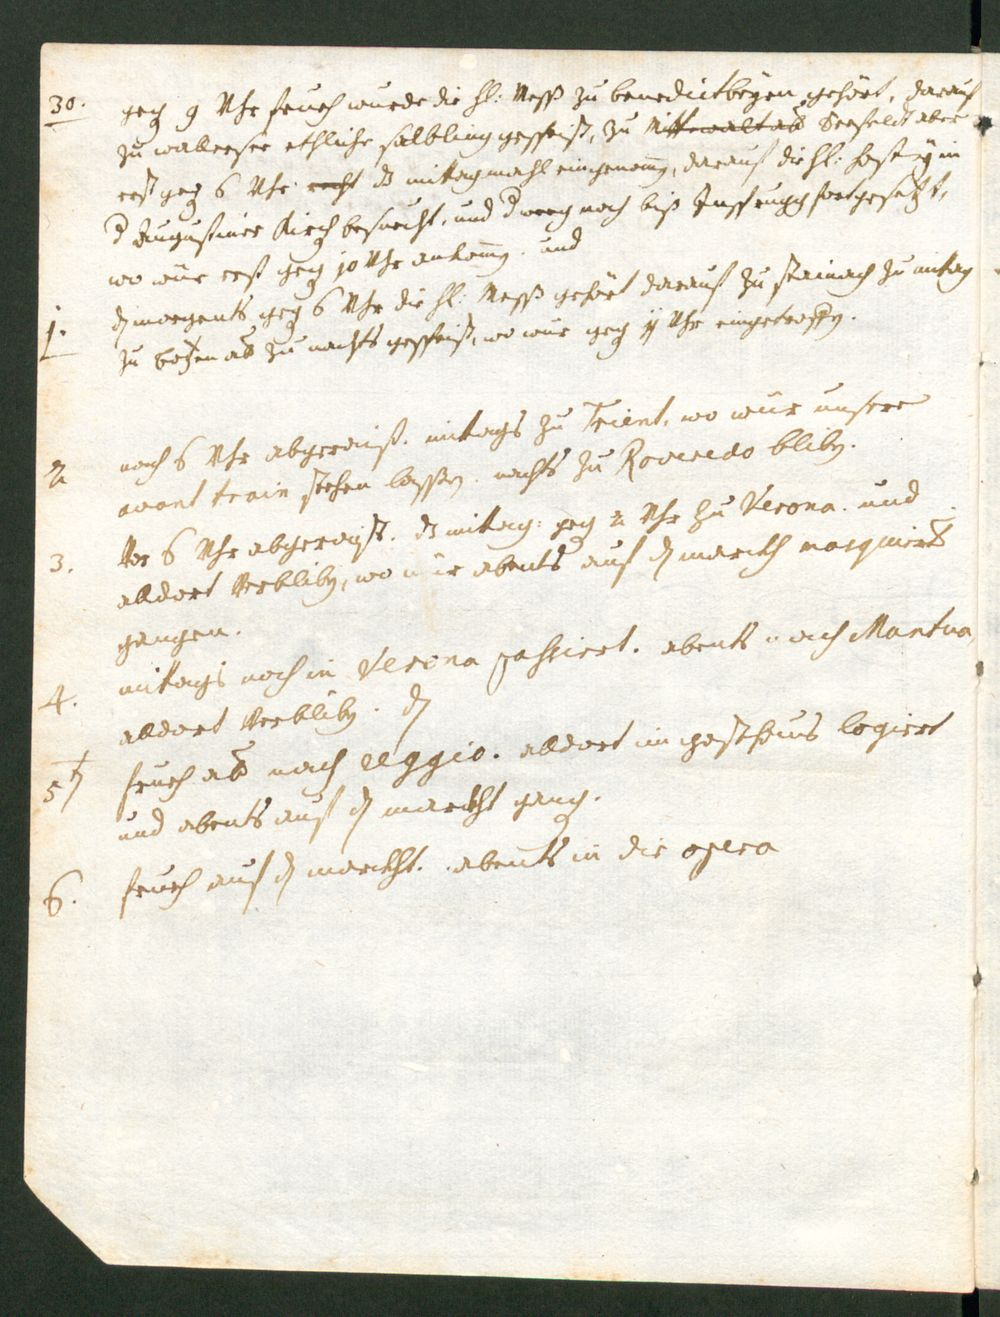 30. geg 9 Uhr frueh wurde die hl: Meß zu benedictbeyrn gehört, darauf
zu wallersee ethliche sälbling gespeist, zu Mittewalt aber Seefeldt aber
erst geg 6 Uhr recht dz mitagmahl eingenom̄en, darauf die hl: hosty in
d Augustiner Kirch besuecht, und d weeg noch biß Insprugg fortgesetzt,
wo wür erst geg 10 Uhr ankom̄en. und
1. dz morgents geg 6 Uhr die hl: Meß gehört darauf zu stainach zu mitag
zu bozen aber zu nachts gespeist, wo wür geg 11 Uhr eingetroffen.
2 nach 6 Uhr abgeraist. mitags zu Trient, wo wür unsere
avant train stehen lassen. nachts zu Roveredo bliben.
3. Vor 6 Uhr abgeraist. dz mitag: geg 2 Uhr zu Verona. und
alldort Verbliben, wo wür abents auf den marckh masquiert
gangen.
4. mitags noch in Verona passiert. abents nach Mantua,
alldort Verbliben. den
5t frueh ab nach reggio. alldort im posthaus logiert
und abents auf den marckht gang.
6. frueh auf den marckht. abents in die opera